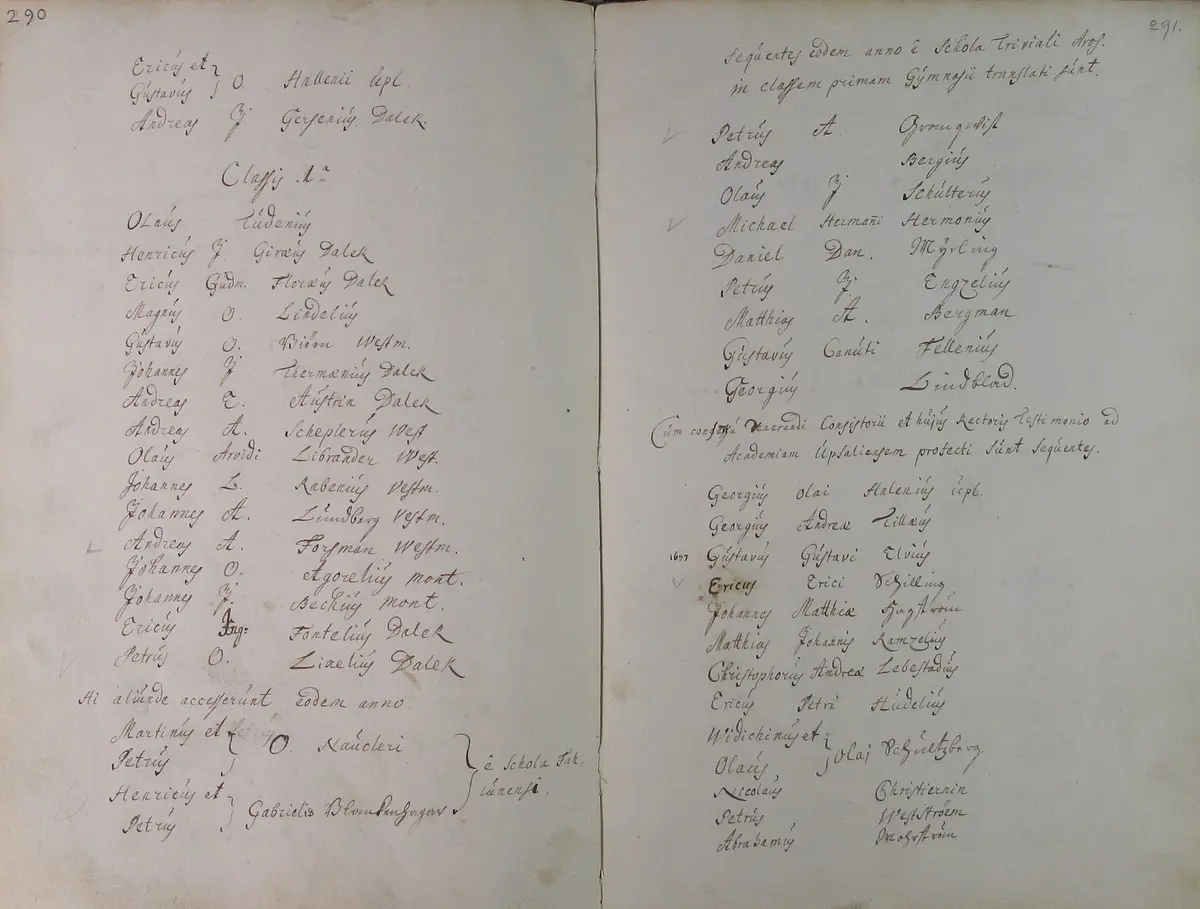 290
Ericus et
Gustavus } O. Hallenii Upl.
Andreas J Gersenius Dalek.
Classis 1a
Olaus Tudenius
Henricus J. Giræus Dalek
Ericus Gudm. Floræus Dalek
Magnus O. Lindelius
Gustavus O. Biörn Westm.
Johannes J Thermænius Dalek
Andreas E. Austrin Dalek
Andreas A. Scheplerus West
Olaus Arvidi Librander West.
Johannes L. Rabenius Vestm.
Johannes A. Lundberg Vestm.
Andreas A. Forsman Westm.
Johannes O. Agorelius mont.
Johannes J. Bechius mont.
Ericus Ing: Fontelius Dalek
Petrus O. Liaelius Dalek
Hi aliunde accesserunt eodem anno
Martinus et
Petrus } O. Naucleri
Henricus et
Petrus } Gabrielis Blankenhagar
} è Schola Fah-
lunensi.
291.
Sequentes eodem anno è Schola Triviali Aros.
in classem primam Gymnasii translati sunt.
Petrus A. Gromqwist
Andreas Bergius
Olaus J Schulterus
Michael Hermani Hermonius
Daniel Dan. Myrling
Petrus J. Engzelius
Matthias A. Bergman
Gustavus Canuti Fellenius
Georgius Lindblad.
Cum consensu Venerandi Consistorii et hujus Rectoris Testimonio ad
Academiam Upsaliensem profecti sunt sequentes.
Georgius Olai Halenius Upl.
Georgius Andreæ Tillæus
1677 Gustavus Gustavi Elvius
Ericus Erici Schilling
Johannes Matthiæ Hagström
Matthias Johannis Ramzelius
Christophorus Andreæ Lebestadius
Ericus Petri Hudelius
Widichinus et
Olaus } Olai Schultzberg
Nicolaus Christiernin
Petrus Westström
Abrahamus Mohrström